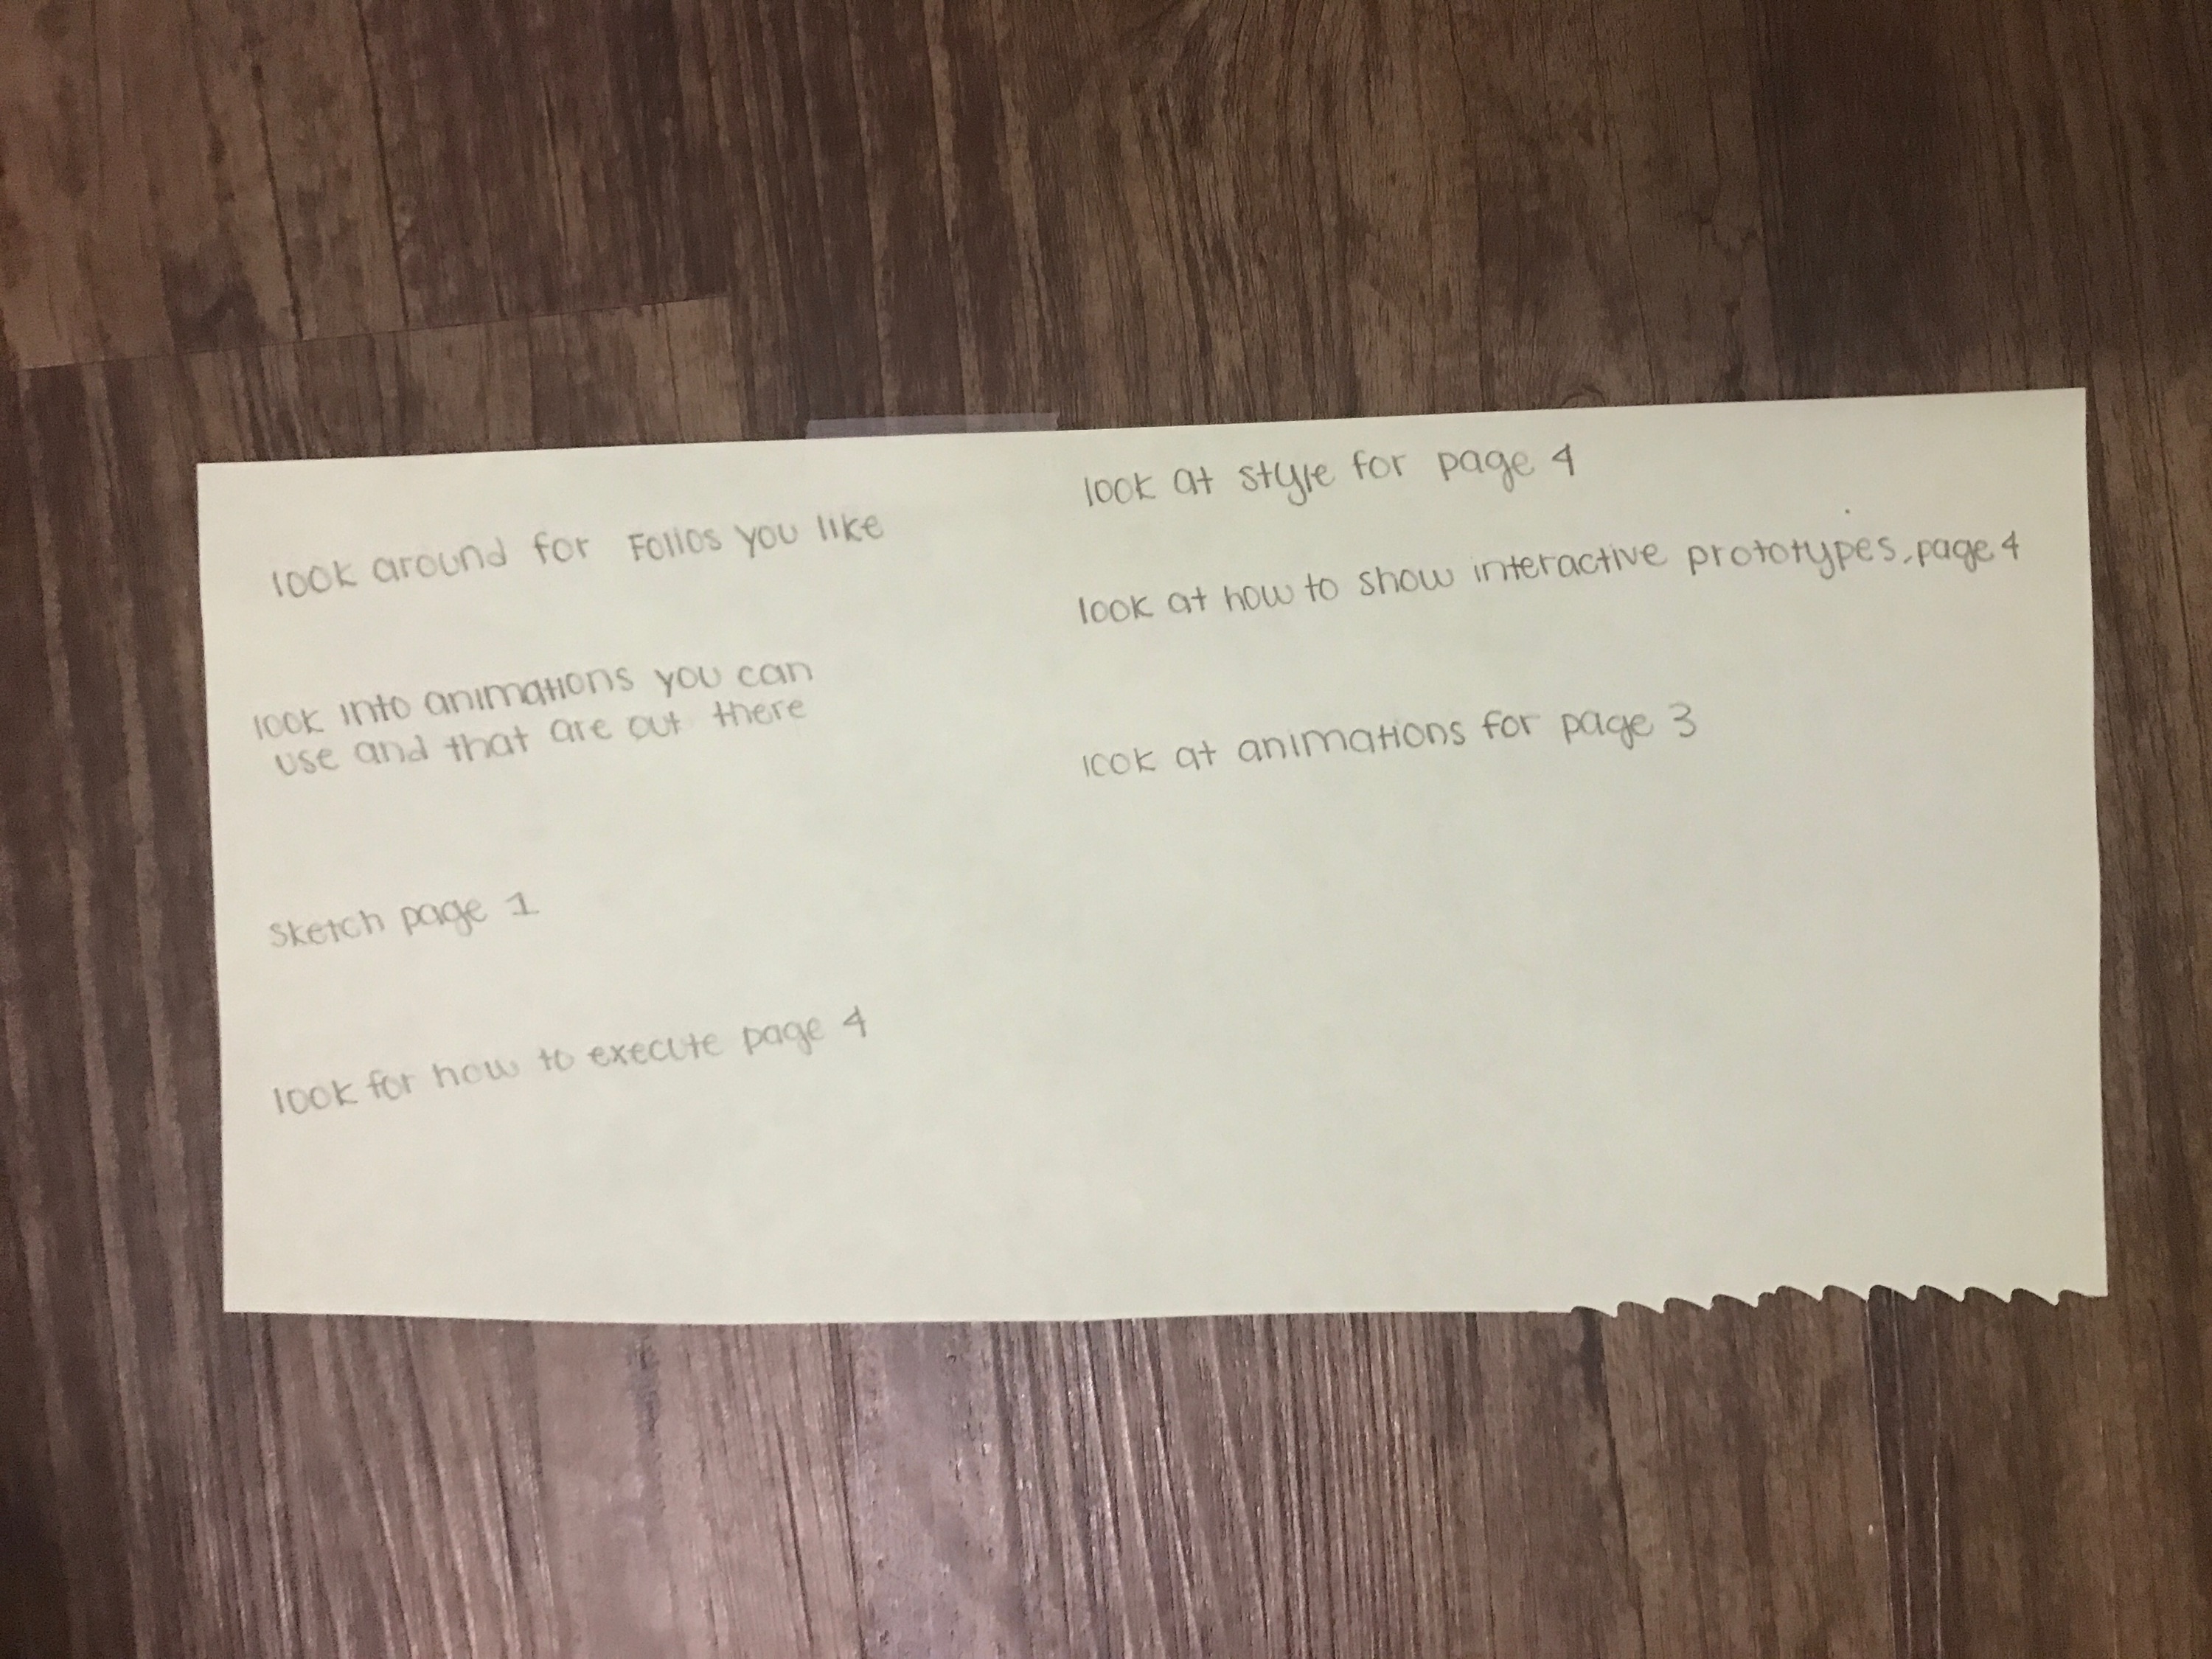 look around for Folios you like
look into animations you can
use and that are out there
Sketch page 1
look for how to execute page 4
look at style for page 4
look at how to show interactive prototypes, page 4
look at animations for page 3